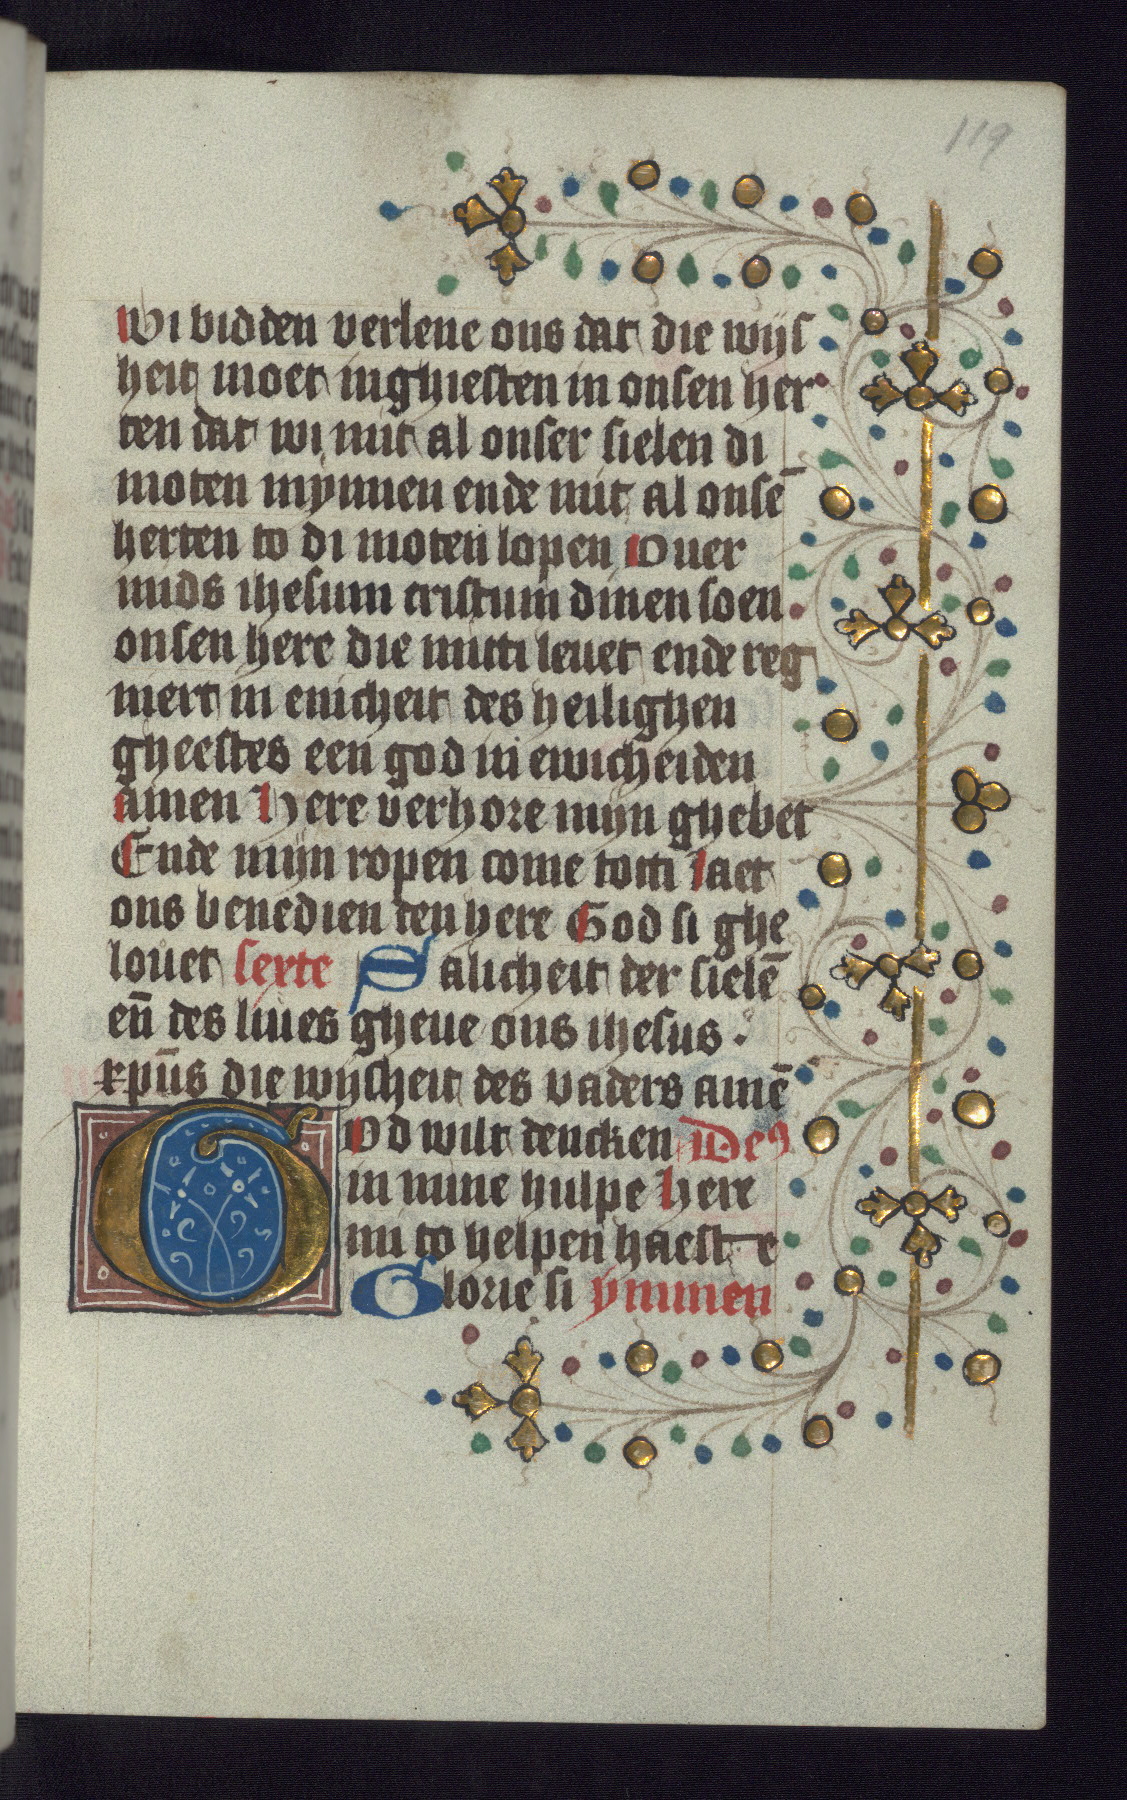 119
Wi bidden verlene ons dat die wijs
heit moet inghiesten in onsen her
ten dat wi mit al onser sielen di
moten mynnen ende mit al onsē
herten to di moten lopen Ouer
mids ihesum cristum dinen soen
onsen here die mitti leuet ende reg
niert in enicheit des heilighen
gheestes een god in ewicheiden
amen Here verhore mijn ghebet
Ende mijn ropen come totti Laet
ons benedien ten here God si ghe
louet sexte Salicheit der sielē
en̄ des liues gheue ons ihesus .
xpūs die wijsheit des vaders amē
GOd wilt dencken Deꝰ
in mine hulpe Here
mi to helpen haeste
Glorie si ymmen